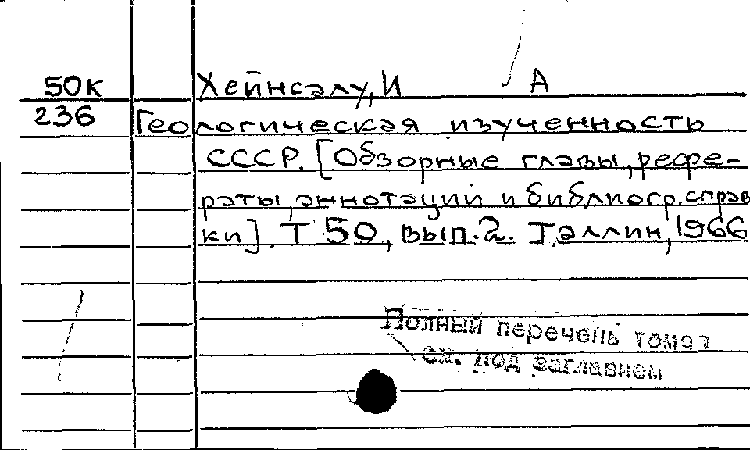 50К Хейнсалу, И А
236 Геологическая изученность
СССР. [Обзорные главы, рефе-
раты, аннотаций и библиогр. справ
ки]. Т 50, вып. 2. Таллин, 1966
Полный перечень томов
см. под заглавием